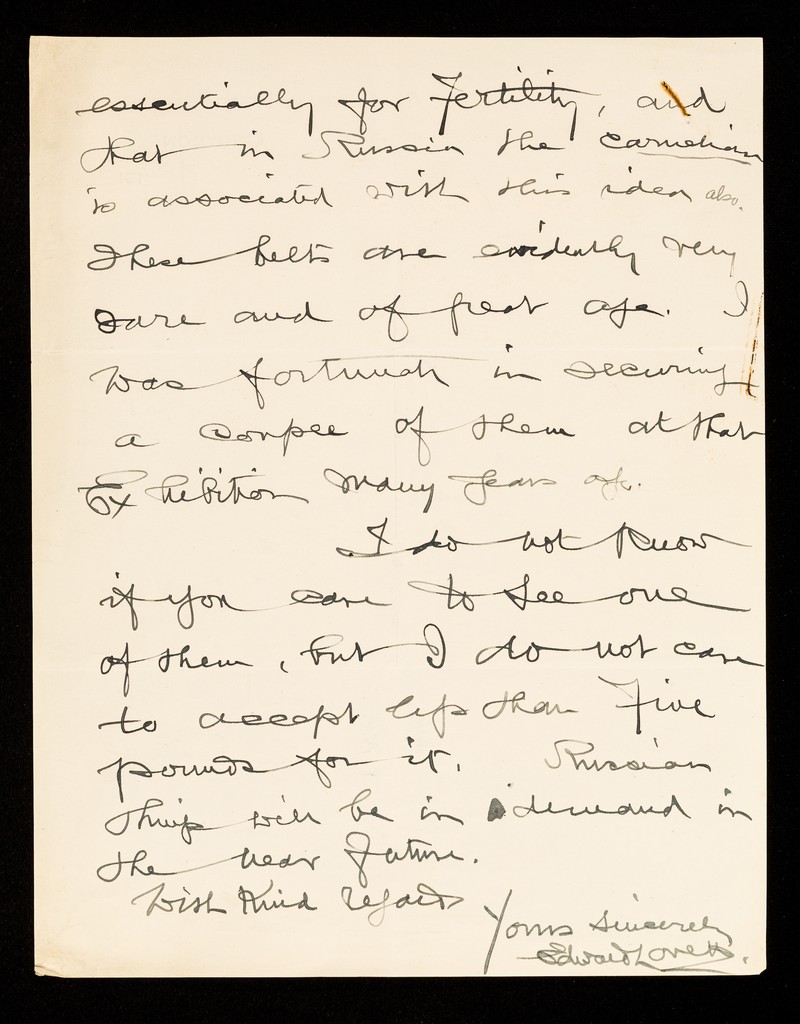 essentially for Fertility, and
that in Russia the carnelian
is associated with this idea also.
These belts are evidently very
rare and of great age. I
was fortunate in securing
a couple of them at that
Exhibition many years ago.
I do not know
if you care to see one
of them, but I do not care
to accept less than Five
pounds for it. Russian
things will be in demand in
the near future.
With Kind regards
Yours sincerely
Edward Lovett.